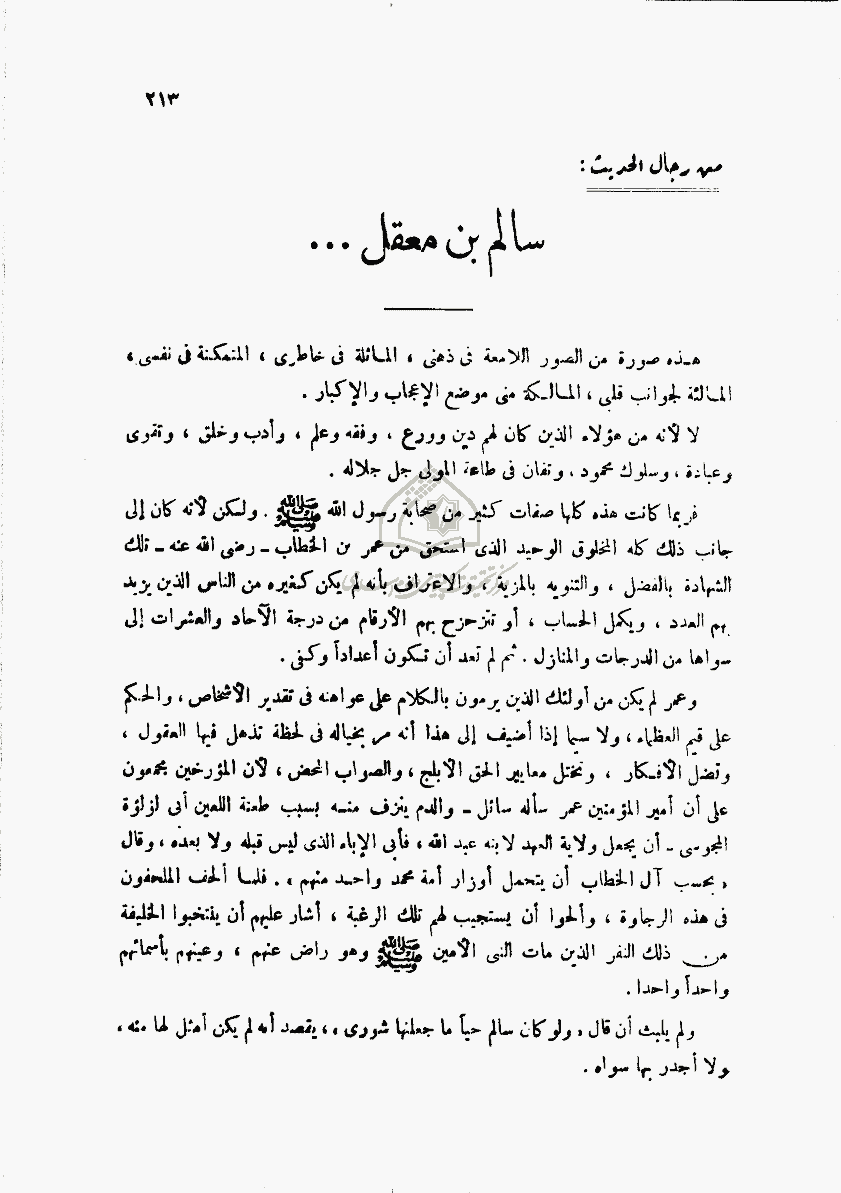 ٢١٣
من رجال الحديث :
سالم بن معقل ...
هـذه صورة من الصور اللامعة فى ذهنى ، المـاثلة فى خاطرى ، المتمكنة فى نفسى ،
المـالئة لجوانب قلبى ، المـالـكة منى موضع الإعجاب والإكبار .
لا لأنه من هؤلاء الذين كان لهم دين وورع ، وفقه وعلم ، وأدب وخلق ، وتقوى
وعبادة ، وسلوك محمود ، وتفان فى طاعة المولى جل جلاله .
فربما كانت هذه كلها صفات كثير من صحابة رسول الله ﷺ . ولـكن لأنه كان إلى
جانب ذلك كله المخلوق الوحيد الذى استحق من عمر بن الخطاب ـ رضى الله عنه ـ تلك
الشهادة بالفضل ، والتنويه بالمزية ، والاعتراف بأنه لم يكن كغيره من الناس الذين يزيد
بهم العدد ، ويكمل الحساب ، أو تتزحزح بهم الأرقام من درجة الآحاد والعشرات إلى
سواها من الدرجات والمنازل . ثم لم تعد أن تـكون أعداداً وكفى .
وعمر لم يكن من أولئك الذين يرمون بالـكلام على عواهنه فى تقدير الأشخاص ، والحكم
على قيم العظماء ، ولا سيما إذا أضيف إلى هذا أنه مر بخياله فى لحظة تذهل فيها العقول ،
وتضل الأفـكار ، وتختل معايير الحق الأبلج ، والصواب المحض ، لأن المؤرخين مجمعون
على أن أمير المؤمنين عمر سأله سائل ـ والدم ينزف منـه بسبب طعنة اللعين أبى لؤلؤة
المجوسى ـ أن يجعل ولاية العهد لابنه عبد الله ، فأبى الإباء الذى ليس قبله ولا بعده ، وقال
« بحسب آل الخطاب أن يتحمل أوزار أمة محمد واحـد منهم » . فلمـا ألحف الملحفون
فى هذه الرجاوة ، وألحوا أن يستجيب لهم تلك الرغبة ، أشار عليهم أن ينتخبوا الخليفة
من ذلك النفر الذين مات النبى الأمين ﷺ وهو راض عنهم ، وعينهم بأسمائهم
واحداً واحدا .
ولم يلبث أن قال « ولو كان سالم حياً ما جعلتها شورى » ، يقصد أنه لم يكن أمثل لها منه ،
ولا أجدر بها سواه .